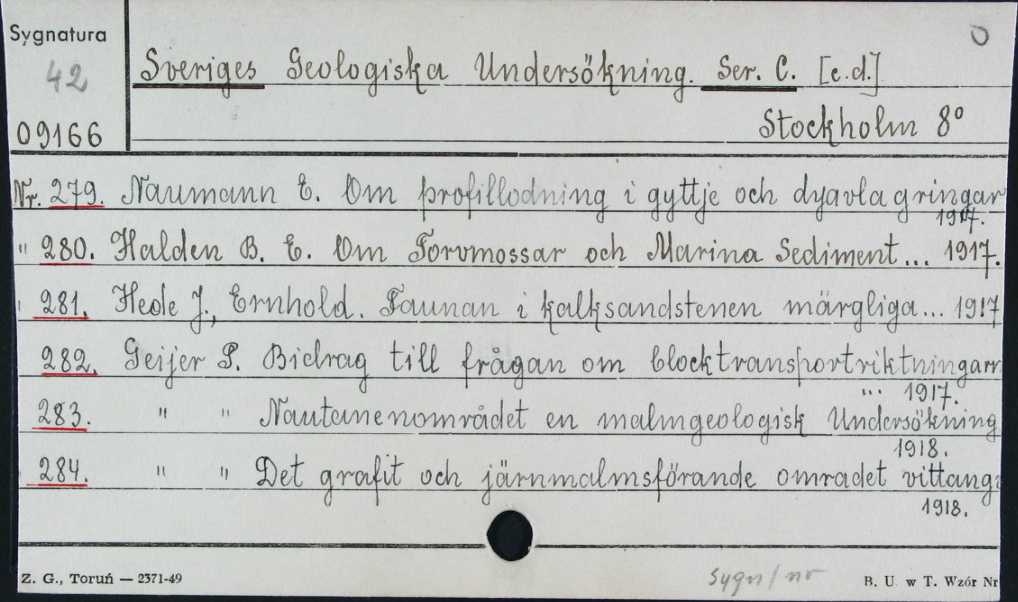 Sygnatura
42
09166
Sveriges Geologiska Undersökning. Ser. C. [c.d.]
Stockholm 8°
Nr. 279. Naumann E. Om profillodning i gyttje och dyavlagringar
1917.
" 280. Halden B. E. Om Torvmossar och Marina Sediment... 1917.
" 281. Hede J., Ernhold. Faunan i kalksandstenen märgliga... 1917
282. Geijer P. Bidrag till frågan om blocktransportriktningarn
... 1917.
283. " " Nautanenområdet en malmgeologisk Undersökning
1918.
284. " " Det grafit och järnmalmsförande omradet vittangi
1918.
Z. G., Toruń — 2371-49
sygn/nr
B. U. w T. Wzór Nr